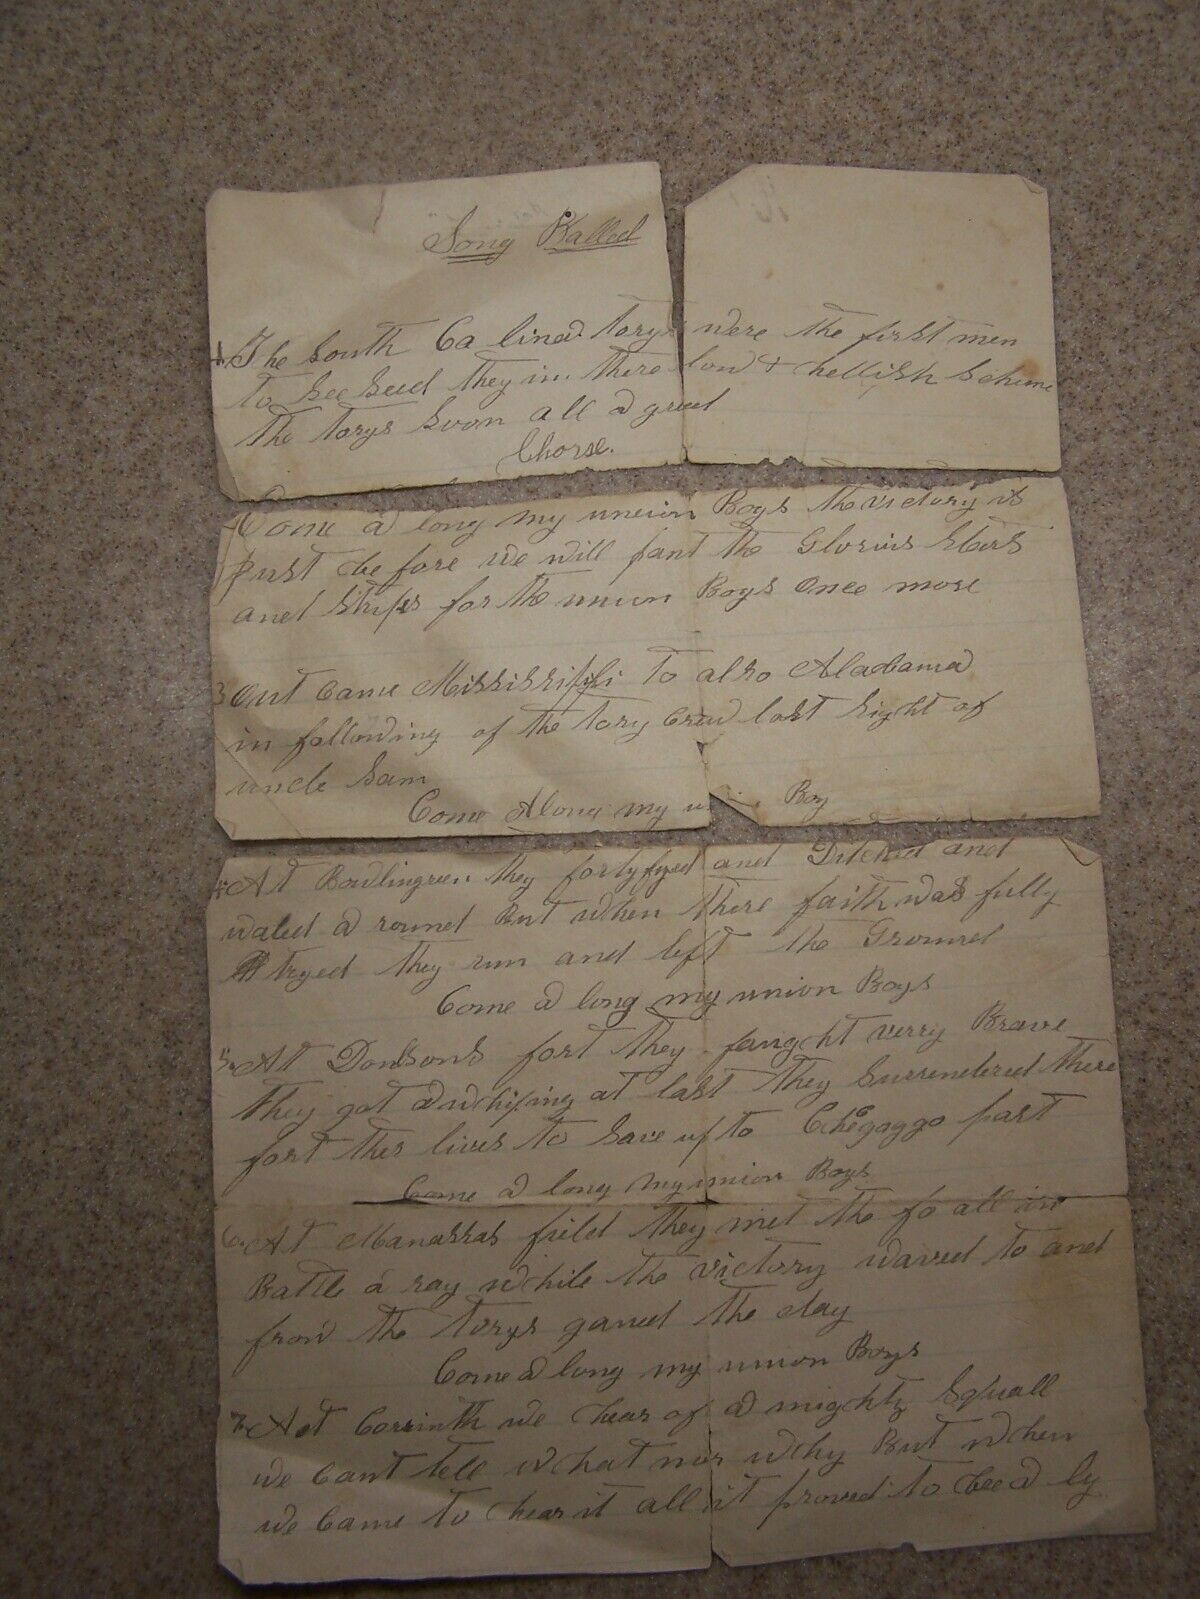 Song Ballad
1 The South Ca lina torys were the first men
to see seed they in there low & hellish scheme
the torys soon all a greed
Chorse.
Come a long my uneion Boys the victory is
just be fore we will pant the Glorius Stars
and Strips for the union Boys once more
3 Out Came Mississippi to also Alabama
in following of the tory Crew lost sight of
uncle Sam
Come Along my Boy
4 At Bowlingreen they fortyfyed and Ditched and
waled a round But when there faith was fully
tryed they run and left the Ground
Come a long my union Boys
5 At Donlsons fort they faught verry Brave
they got a whiping at last they Surrendered there
fort ther lives to save up to Chegaggo past
Come a long my union Boys
6 At Manassas field they met the fo all in
Battle a ray while the victory waved to and
frow the torys ganed the day
Come a long my union Boys
7 At Corrinth we hear of a mighty Squall
we Cant tell what nor why But when
we Came to hear it all it proved to bee a ly